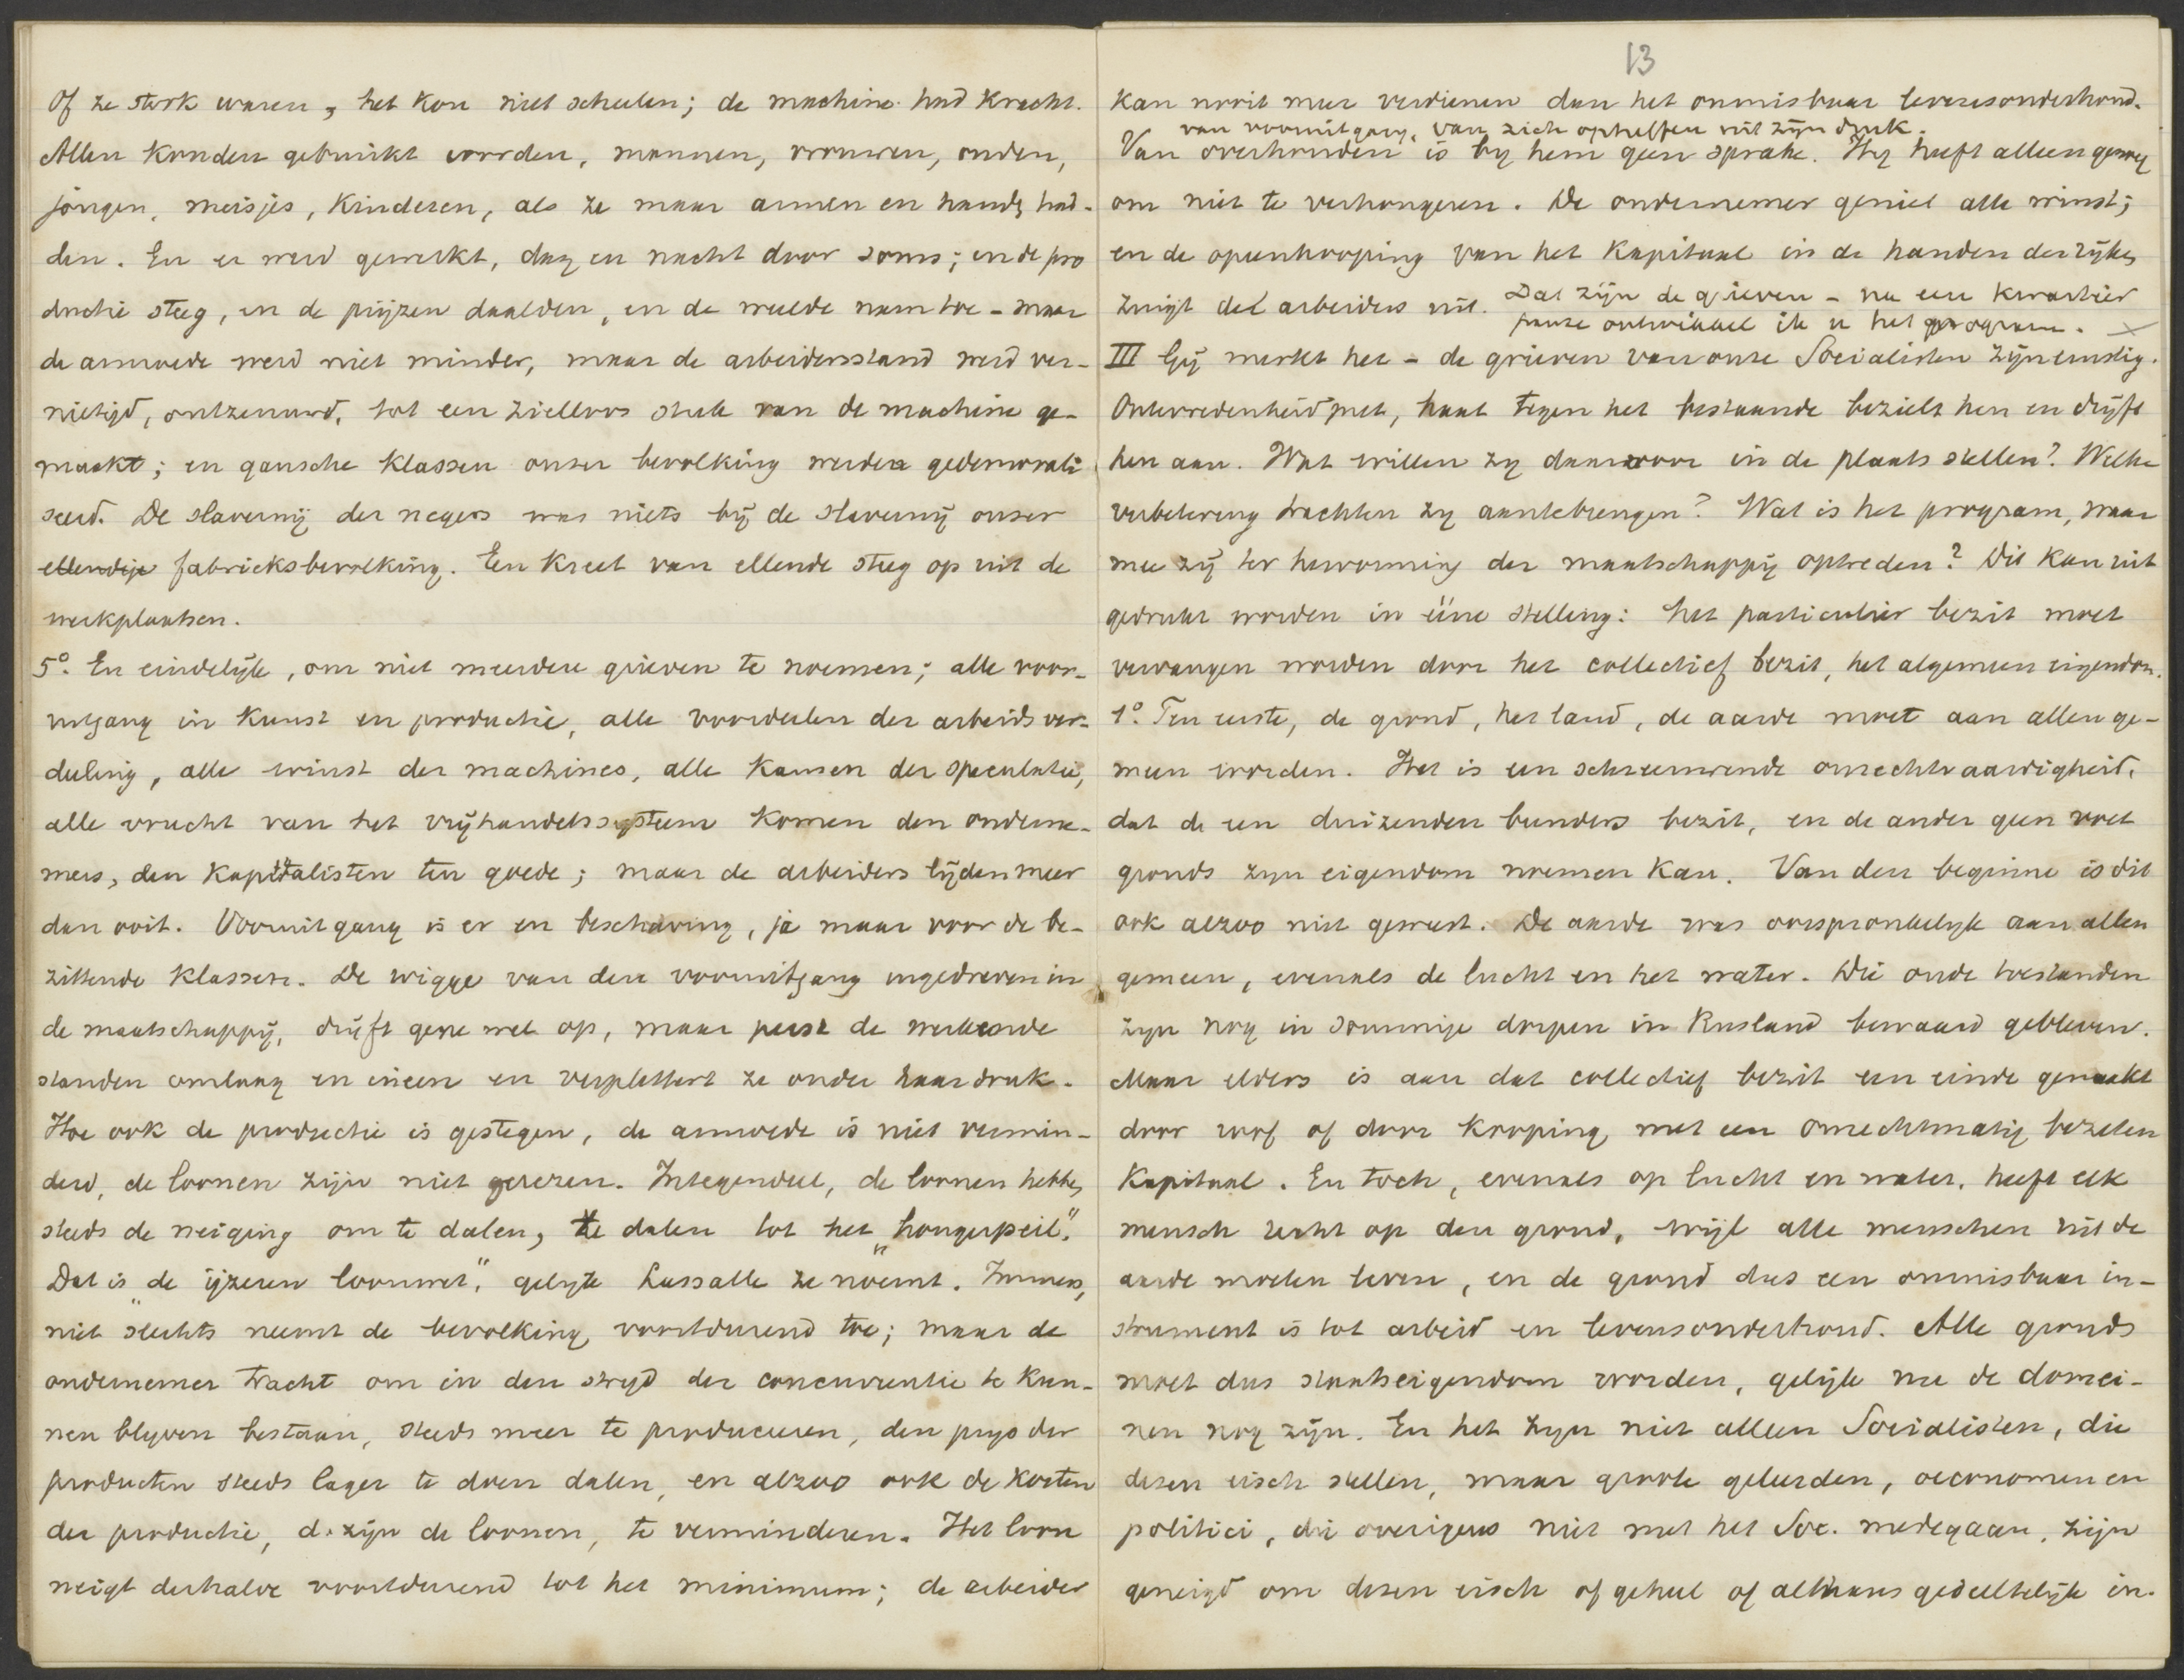 Of ze sterk waren, het kon niet schelen; de machine had kracht.
Allen konden gebruikt worden, mannen, vrouwen, ouden,
jongen, meisjes, kinderen, als ze maar armen en handen had-
den. En er werd gewerkt, dag en nacht door soms; en de pro
ductie steeg, en de prijzen daalden, en de weelde nam toe - maar
de armoede werd niet minder, maar de arbeidersstand werd ver-
nietigd, ontzenuwd, tot een zielloos stuk van de machine ge-
maakt; en gansche klassen onzer bevolking werden gedemorali
seerd. De slavernij der negers was niets bij de slavernij onzer
ellendige fabrieksbevolking. Een kreet van ellende steeg op uit de
werkplaatsen.
5º. En eindelijk, om niet meerdere grieven te noemen; alle voor-
uitgang in kunst en productie, alle voordeelen der arbeidsver-
deeling, alle winst der machines, alle kansen der speculatie,
alle vrucht van het vrijhandelssysteem komen den onderne-
mers, den kapitalisten ten goede; maar de arbeiders lijden meer
dan ooit. Vooruitgang is er en beschaving, ja maar voor de be-
zittende klassen. De wigge van den vooruitgang ingedreven in
de maatschappij, drijft gene wel op, maar perst de werkende
standen omlaag en ineen en verplettert ze onder haar druk.
Hoe ook de productie is gestegen, de armoede is niet vermin-
derd, de loonen zijn niet gerezen. Integendeel, de loonen hebben
steeds de neiging om te dalen, te dalen tot het "hongerpeil".
Dat is "de ijzeren loonwet", gelijk Lassalle ze noemt. Immers,
niet slechts neemt de bevolking voortdurend toe; maar de
ondernemer tracht om in den strijd der concurrentie te kun-
nen blyven bestaan, steeds meer te produceeren, den prys der
producten steeds lager te doen dalen, en alzoo ook de kosten
der productie, d. zijn de loonen, te verminderen. Het loon
neigt derhalve voortdurend tot het minimum; de arbeider
13
kan nooit meer verdienen dan het onmisbaar levensonderhoud.
van vooruitgang, van zich opheffen uit zijn druk.
Van overhouden is by hem geen sprake. Hy heeft alleen genoeg
om niet te verhongeren. De ondernemer geniet alle winst;
en de opeenhooping van het kapitaal in de handen der rijken
zuigt de arbeiders uit. Dat zijn de grieven - na een kwartier
pauze ontwikkel ik u het program. X
III Gij merkt het - de grieven van onze Socialisten zijn ernstig.
Ontevredenheid met, haat tegen het bestaande bezielt hen en drijft
hen aan. Wat willen zy daarvoor in de plaats stellen? Welke
verbetering trachten zy aantebrengen? Wat is het program, waar
mee zij ter hervorming der maatschappij optreden? Dit kan uit
gedrukt worden in ééne stelling: het particulier bezit moet
vervangen worden door het collectief bezit, het algemeen eigendom.
1º. Ten eerste, de grond, het land, de aarde moet aan allen ge-
meen worden. Het is een schreeuwende onrechtvaardigheid,
dat de een duizenden bunders bezit, en de ander geen voet
gronds zyn eigendom noemen kan. Van den beginne is dit
ook alzoo niet geweest. De aarde was oorspronkelyk aan allen
gemeen, evenals de lucht en het water. Die oude toestanden
zyn nog in sommige dorpen in Rusland bewaard gebleven.
Maar elders is aan dat collectief bezit een einde gemaakt
door roof of door kooping met een onrechtmatig bezeten
kapitaal. En toch, evenals op lucht en water, heeft elk
mensch recht op den grond, wijl alle menschen uit de
aarde moeten leven, en de grond dus een onmisbaar in-
strument is tot arbeid en levensonderhoud. Alle gronds
moet dus staatseigendom worden, gelijk nu de domei-
nen nog zijn. En het zyn niet alleen Socialisten, die
dezen eisch stellen, maar groote geleerden, oeconomen en
politici, die overigens niet met het Soc. medegaan, zijn
geneigd om dezen eisch of geheel of althans gedeeltelijk in-